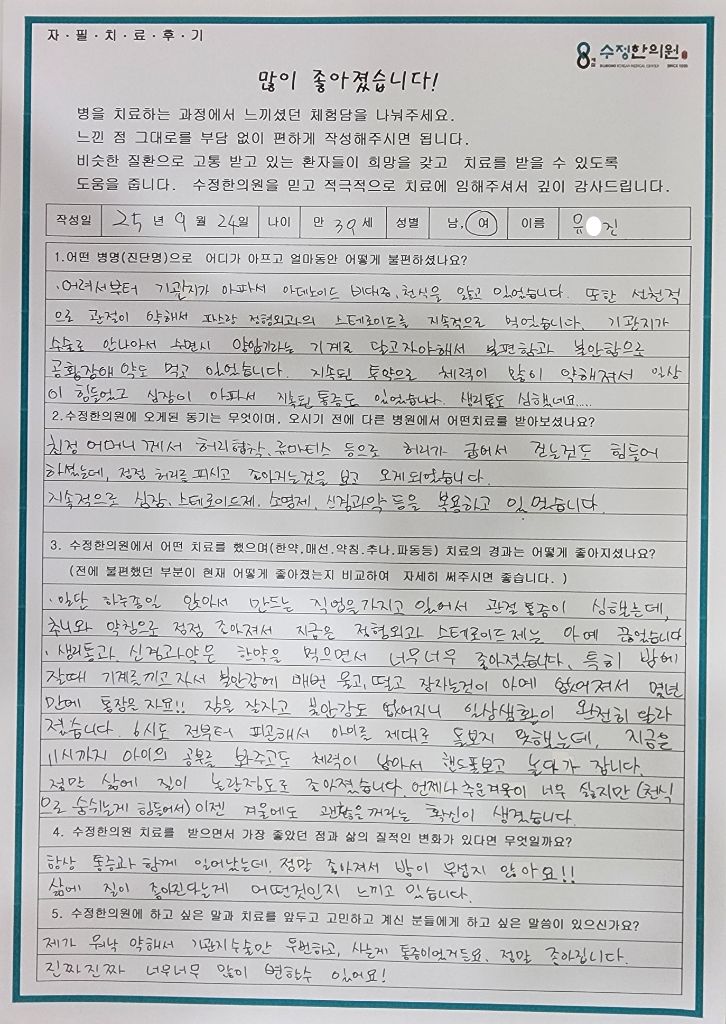 자·필·치·료·후·기
수정한의원
SINCE 1995
많이 좋아졌습니다!
병을 치료하는 과정에서 느끼셨던 체험담을 나눠주세요.
느낀 점 그대로를 부담 없이 편하게 작성해주시면 됩니다.
비슷한 질환으로 고통 받고 있는 환자들이 희망을 갖고 치료를 받을 수 있도록
도움을 줍니다. 수정한의원을 믿고 적극적으로 치료에 임해주셔서 깊이 감사드립니다.
작성일 25 년 9 월 24일 나이 만 39 세 성별 남, 여 이름 유 진
1.어떤 병명(진단명)으로 어디가 아프고 얼마동안 어떻게 불편하셨나요?
·어려서부터 기관지가 아파서 아데노이드 비대증, 천식을 앓고 있었습니다. 또한 선천적
으로 관절이 약해서 파스랑 정형외과의 스테로이드를 지속적으로 먹었습니다. 기관지가
수술로 안나아서 수면시 양압기라는 기계로 달고자야해서 불편함과 불안함으로
공황장애 약도 먹고 있었습니다. 지속된 투약으로 체력이 많이 약해져서 일상
이 힘들었고 심장이 아파서 지속된 통증도 있었습니다. 생리통도 심했네요....
2.수정한의원에 오게된 동기는 무엇이며, 오시기 전에 다른 병원에서 어떤치료를 받아보셨나요?
친정 어머니께서 허리협착, 류마티스 등으로 허리가 굽어서 걷는것도 힘들어
하셨는데, 점점 허리를 피시고 좋아지는것을 보고 오게되었습니다.
지속적으로 심장, 스테로이드제, 소염제, 신경과약 등을 복용하고 있었습니다.
3. 수정한의원에서 어떤 치료를 했으며(한약,매선,약침,추나,파동등) 치료의 경과는 어떻게 좋아지셨나요?
(전에 불편했던 부분이 현재 어떻게 좋아졌는지 비교하여 자세히 써주시면 좋습니다. )
·일단 하루종일 앉아서 만드는 직업을가지고 있어서 관절통증이 심했는데,
추나와 약침으로 점점 좋아져서 지금은 정형외과 스테로이드제는 아예 끊었습니다
·생리통과, 신경과약은 한약을 먹으면서 너무너무 좋아졌습니다. 특히 밤에
잘때 기계를끼고 자서 불안감에 매번 울고, 떨고 잠자는것이 아예 없어져서 몇년
만에 통잠은 자요!! 잠을 잘자고 불안감도 없어지니 일상생활이 완전히 달라
졌습니다. 6시도 전부터 피곤해서 아이를 제대로 돌보지 못했는데, 지금은
11시까지 아이의 공부를 봐주고도 체력이 남아서 핸드폰보고 놀다가 잡니다.
정말 삶에 질이 놀랄정도로 좋아졌습니다. 언제나 추운겨울이 너무 싫지만 (천식
으로 숨쉬는게 힘들어서) 이젠 겨울에도 괜찮을꺼라는 확신이 생겼습니다.
4. 수정한의원 치료를 받으면서 가장 좋았던 점과 삶의 질적인 변화가 있다면 무엇일까요?
항상 통증과 함께 일어났는데, 정말 좋아져서 밤이 무섭지 않아요!!
삶에 질이 좋아진다는게 어떤것인지 느끼고 있습니다.
5. 수정한의원에 하고 싶은 말과 치료를 앞두고 고민하고 계신 분들에게 하고 싶은 말씀이 있으신가요?
제가 워낙 약해서 기관지수술만 두번하고, 사는게 통증이었거든요. 정말 좋아집니다.
진짜진짜 너무너무 많이 변할수 있어요!